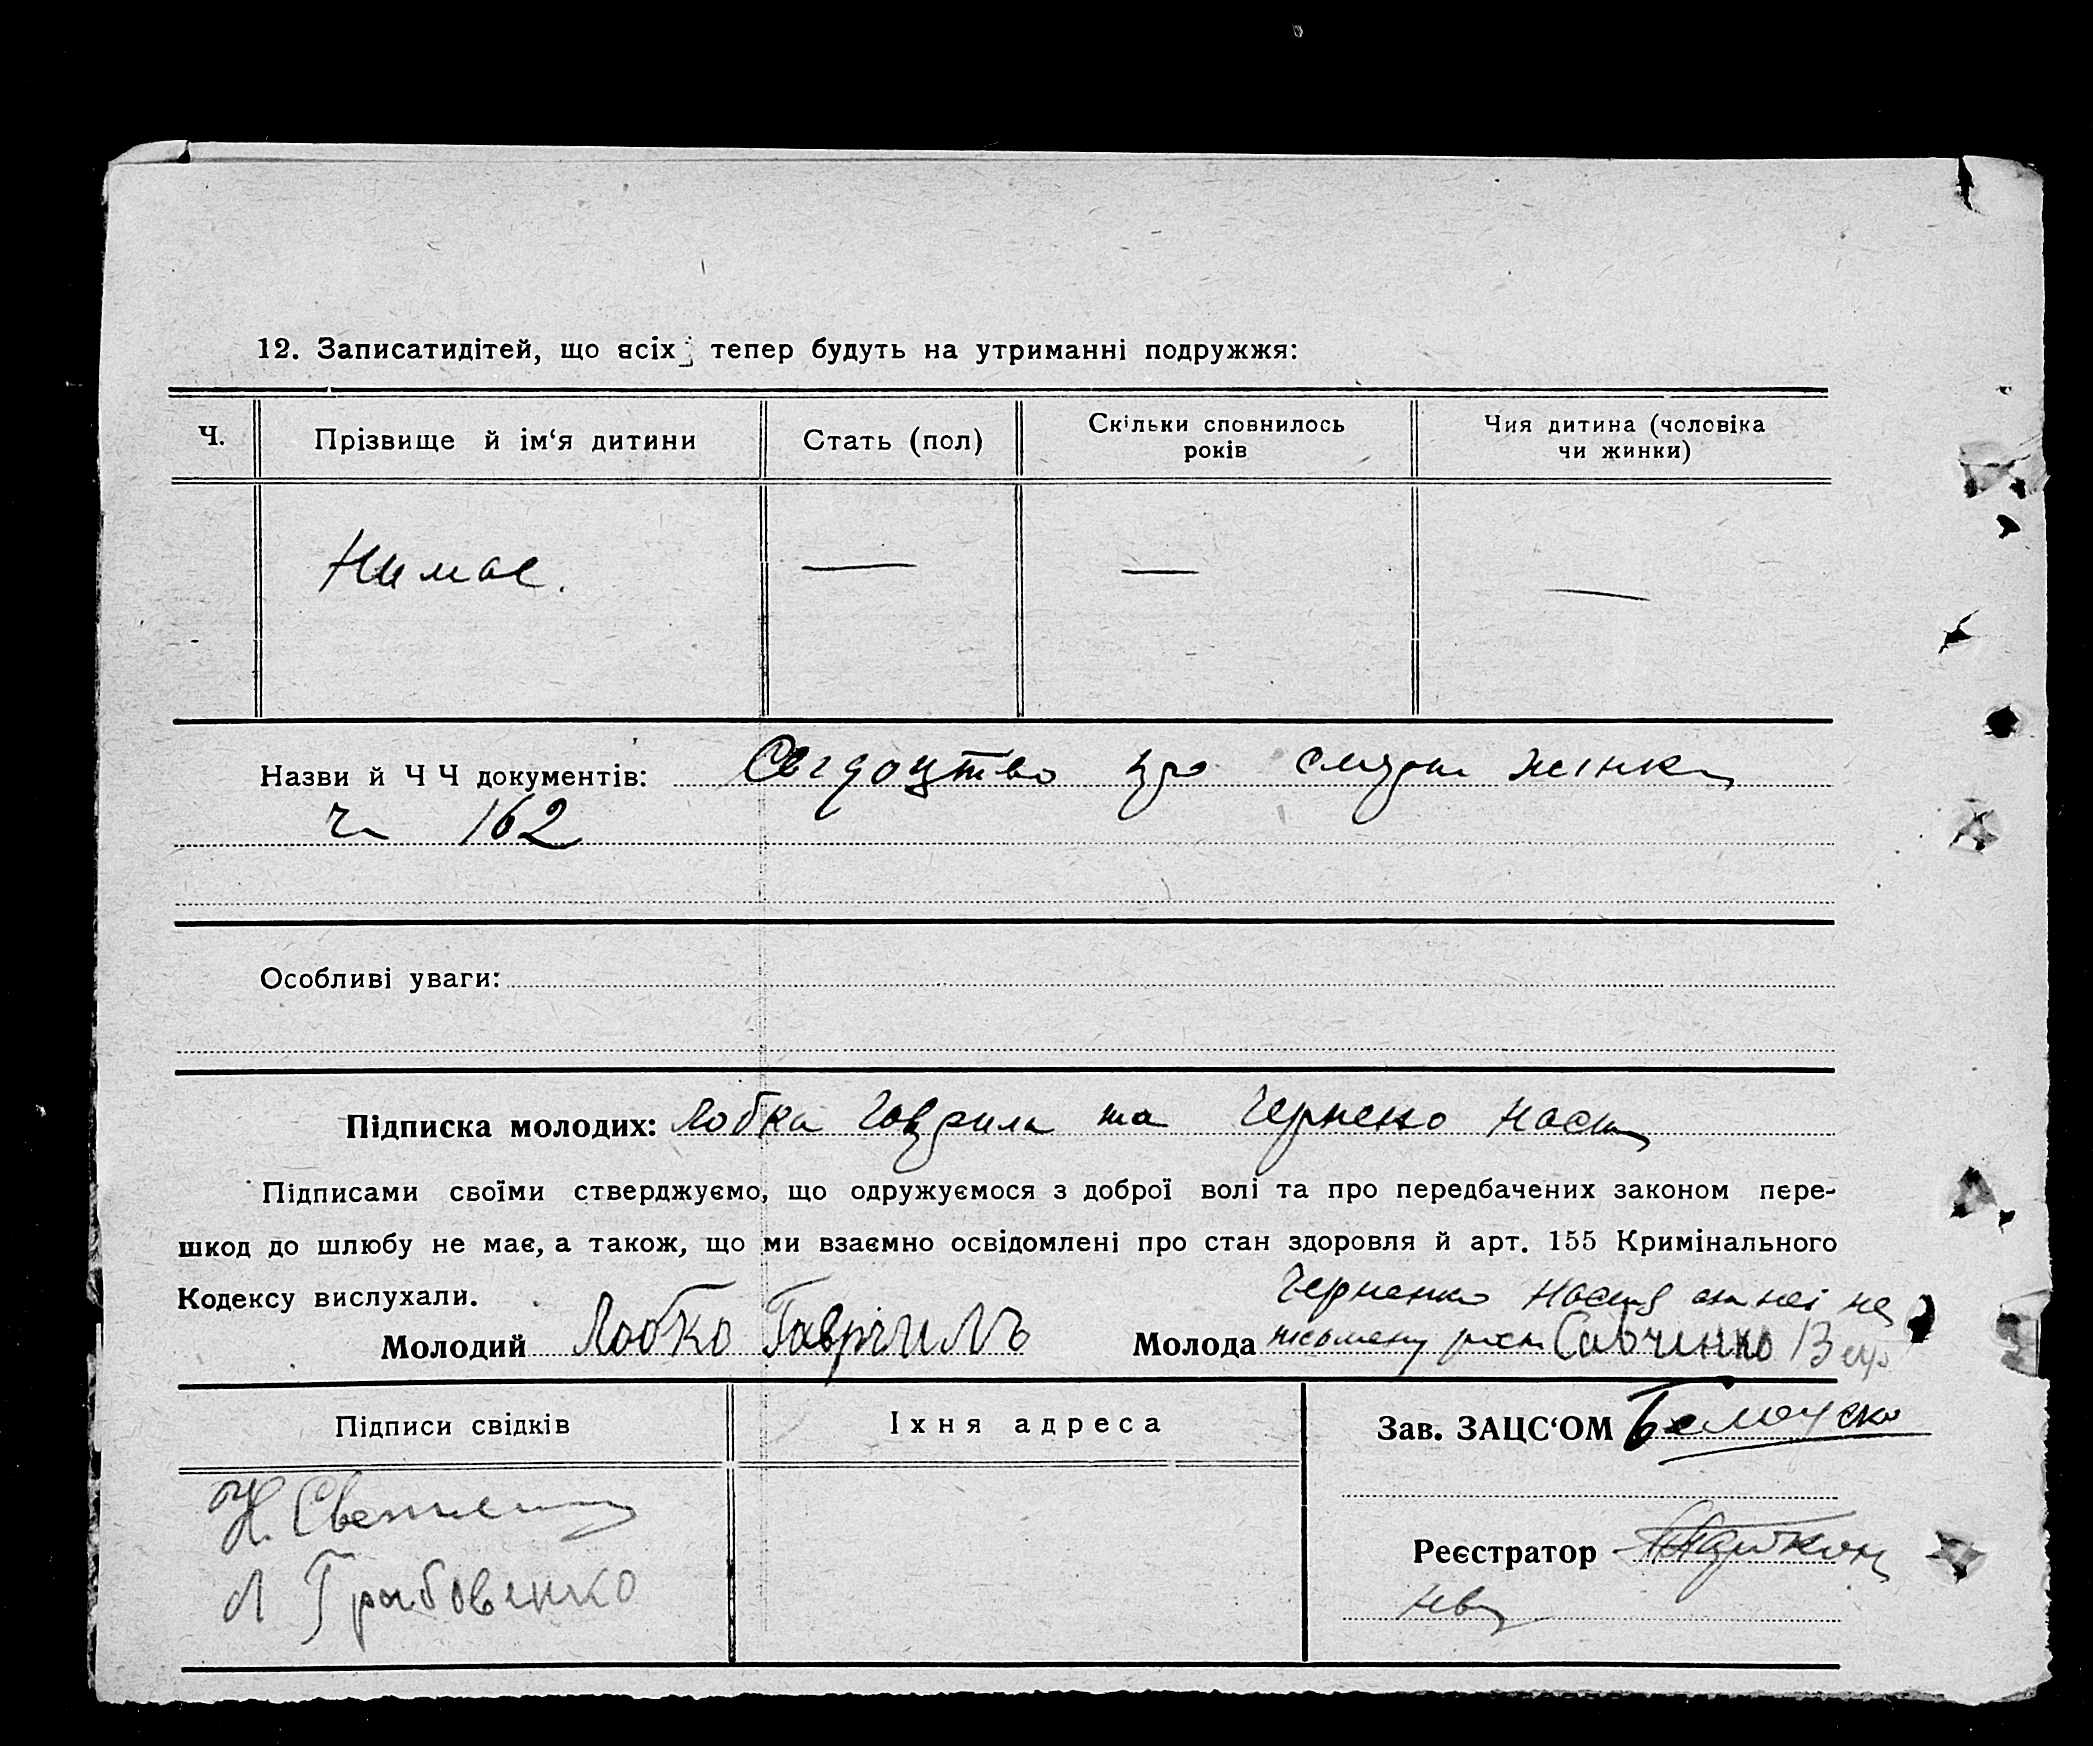 12. Записатидітей, що всіх тепер будуть на утриманні подружжя:
Ч. Прізвище й ім‘я дитини Стать (пол) Скільки сповнилось років Чия дитина (чоловіка чи жинки)
Нимає. — — —
Назви й Ч Ч документів: Свідоцтво про смерть жінки
ч 162
Особливі уваги:
Підписка молодих: Лобка Гаврила та Черненко Насті
Підписами своїми стверджуємо, що одружуємося з доброї волі та про передбачених законом пере-
шкод до шлюбу не має, а також, що ми взаємно освідомлені про стан здоровля й арт. 155 Кримінального
Кодексу вислухали.
Черненко Настя
Молодий Лобко Гаврііилъ Молода Савчинко
Підписи свідків Їхня адреса Зав. ЗАЦС‘ОМ
Реєстратор
Л Грабовенко